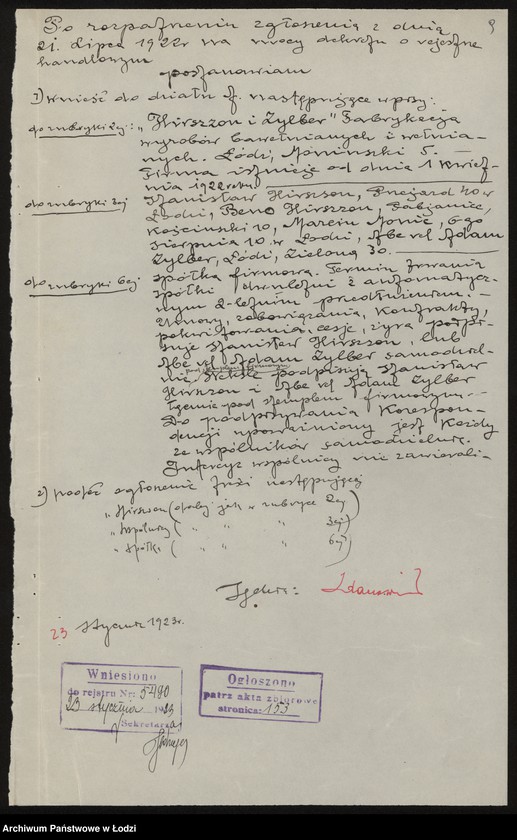 9
Po rozpatrzeniu zgłoszenia z dnia
21. lipca 1922r na mocy dekretu o rejestrze
handlowym
postanawiam
1) wnieść do działu f. następujące wpisy:
do rubryki 2ej: "Hirszzon i Zylber" Fabrykacja
wyrobów bawełnianych i wełnia-
nych. Łódź, 5. —
Firma istnieje od dnia 1 kwiet-
nia 1922 roku
do rubryki 3ej Stanisław Hirszzon, 40 w
Łodzi, Beno Hirszzon, Pabjanice,
10, 6-go
Sierpnia 10 w Łodzi, Abe vel Adam
Zylber, Łódź, Zielona 30. —
do rubryki 6ej Spółka firmowa. Termin trwania
spółki z automatycz-
nym 2-letnim przedłużeniem. —
Umowy, zobowiązania, kontrakty,
pokwitowania, cesje, żyra podpi-
suje Stanisław Hirszzon, lub
Abe vel Adam Zylber samodziel-
nie, weksle podpisują Stanisław
Hirszzon i Abe vel Adam Zylber
łącznie pod stemplem firmowym. —
Do podpisywania korespon-
dencji upoważniony jest każdy
ze wspólników samodzielnie.
Intercyz wspólnicy nie zawierali —
2) ogłoszenie treści następującej
"Hirszzon ( jak w rubryce 2ej
"Wspólnicy ( " " " 3ej)
"Spółka ( " " " 6ej)
Sędzia:
23 stycznia 1923r.
Wniesiono
do rejstru Nr: 5490
23 stycznia 1923
Sekretarz
Ogłoszono
patrz akta zbiorowe
stronica: 153
Archiwum Państwowe w Łodzi